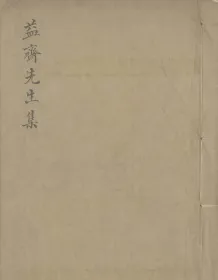 益齋先生集